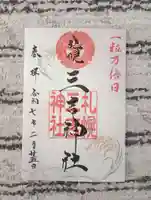 一粒万倍日
三吉神社
札幌
三吉
神社
奉拝 令和七年二月廿五日